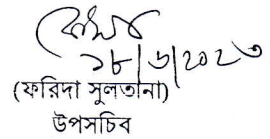 ১৮/৬/২০২৩
(ফরিদা সুলতানা)
উপসচিব